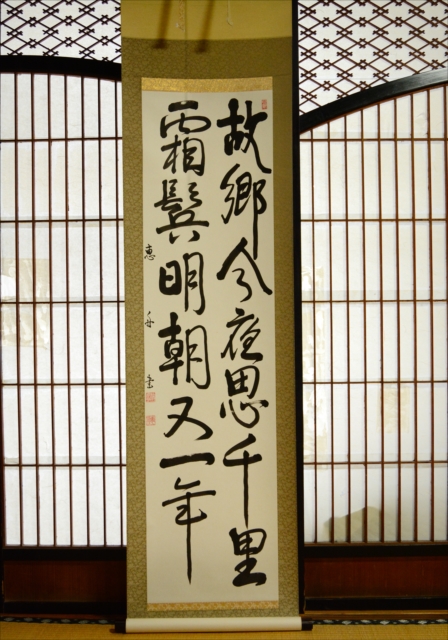 故郷今夜思千里
霜鬂明朝又一年
恵舟書